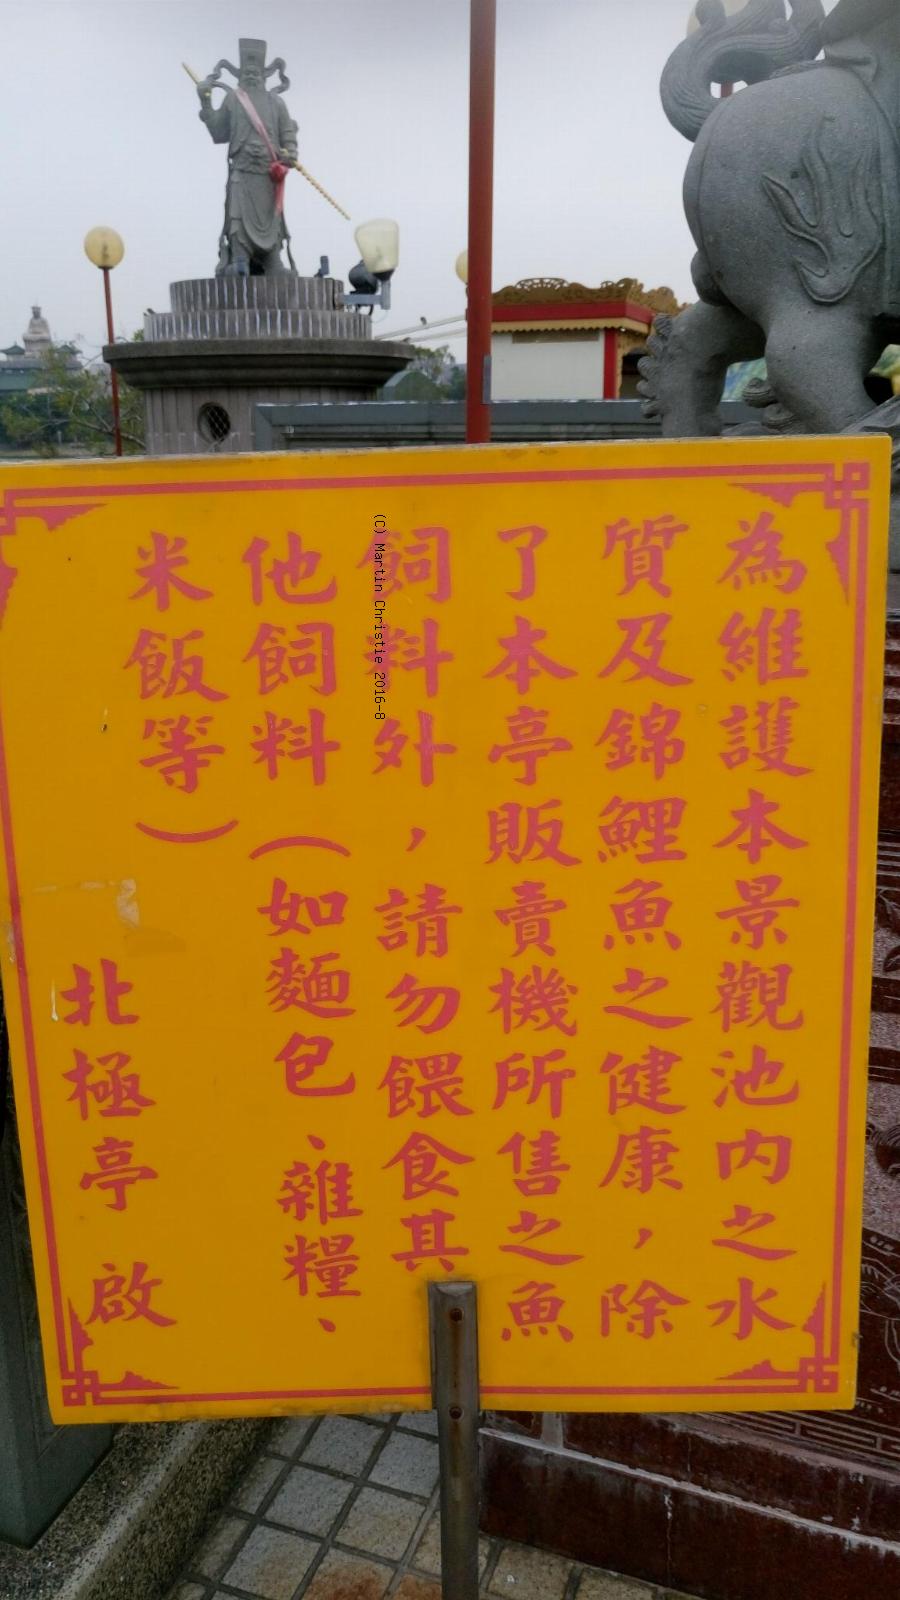 為維護本景觀池內之水
質及錦鯉魚之健康，除
了本亭販賣機所售之魚
飼料外，請勿餵食其
他飼料（如麵包、雜糧、
米飯等）
北極亭 啟
(C) Martin Christie 2016-8